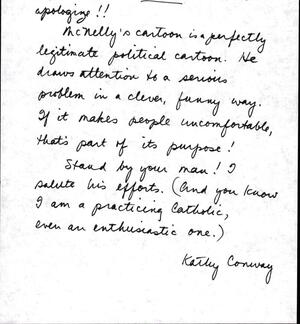 apologize!!
McNelly's cartoon is a perfectly
legitimate political cartoon. He
draws attention to a serious
problem in a clever, funny way.
If it makes people uncomfortable,
that's part of its purpose!
Stand by your man! I
salute his efforts. (And you know
I am a practicing Catholic,
even an enthusiastic one.)
Kathy Conway